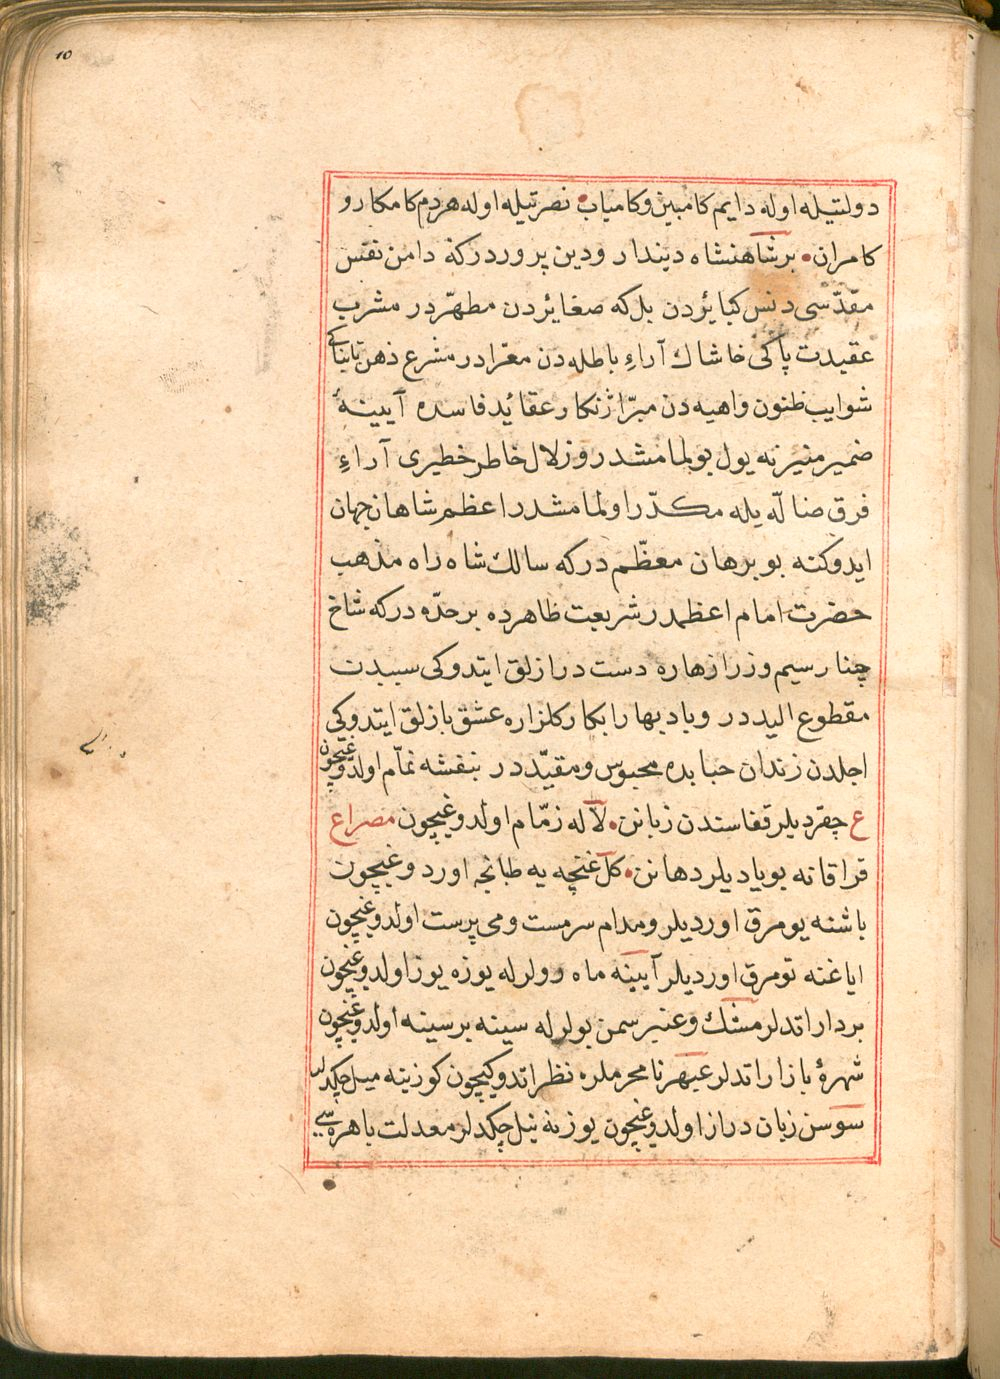 10
دولتیله اوله دایم کامبین و کامیاب نصرتیله اوله هر دم کامکار و
کامران برشاهنشاه دیندار و دین پروردرکه دامن نفس
مقدّسی دنس کبائردن بل که صغایردن مطهّردر مشرب
عقیدت پاکی خاشاك آراءِ باطله دن معرّادر مشرع ذهن تابناکی
شوایب ظنون واهیه دن مبرّا ژنکار عقایٔد فاسده آیینهٔ
ضمیر منیرنه یول بولمامشدر و زلال خاطر خطیری آراءِ
فرق ضالّه یله مکدّر اولمامشدر اعظم شاهان جهان
ایدوکنه بو برهان معظّم درکه سالك شاه راه مذهب
حضرت امام اعظمدر شریعت ظاهرده برحدّه درکه شاخ
چنار سیم و زر ازهاره دست درازلق ایتدوکی سببدن
مقطوع الیددر و باد بهار ابکار کلزاره عشق بازلق ایتدوکی
اجلدن زندان حبابده محبوس و مقیّددر بنفشه نمّام اولدوغیچون
ع چقردیلر قفاسندن زبانن لاله زمّام اولدوغیچون مصراع
قراقانه بویادیلر دهانن کل غنچه یه طبانچه اوردوغیچون
باشنه یومرق اوردیلر و مدام سرمست و می پرست اولدوغیچون
ایاغنه تومرق اوردیلر آیینه ماه رولرله یوزه یوز اولدوغیچون
بردار اتدلر مشك و عنبر سمن بولرله سینه برسینه اولدوغیچون
شهرهٔ بازار اتدلر عبهر نامحرملره نظر اتدوکیچون کوزینه میل چکدلر
سوسن زبان دراز اولدوغیچون یوزنه نیل چکدلر معدلت باهره سی